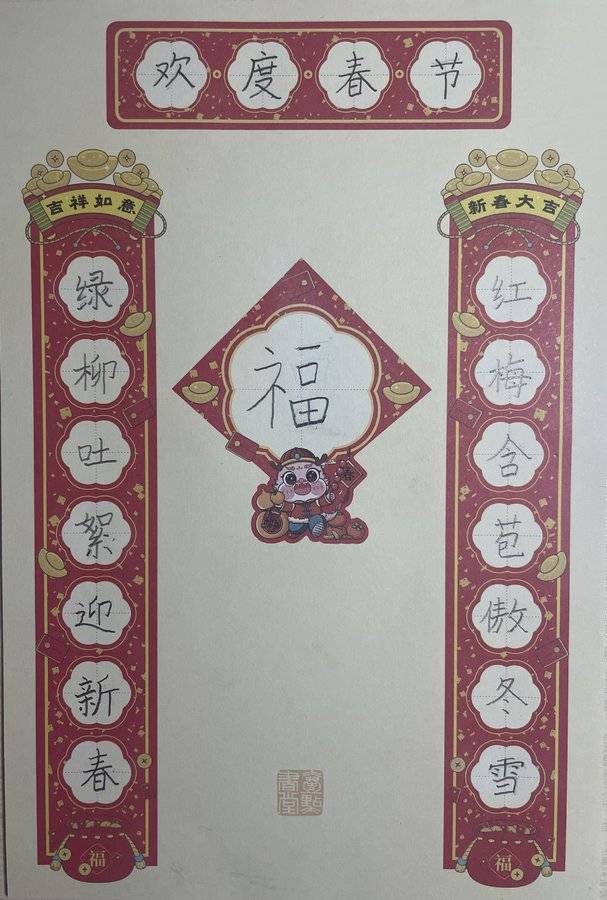 欢度春节
新春大吉
红梅含苞傲冬雪
福
吉祥如意
绿柳吐絮迎新春
福
春
福